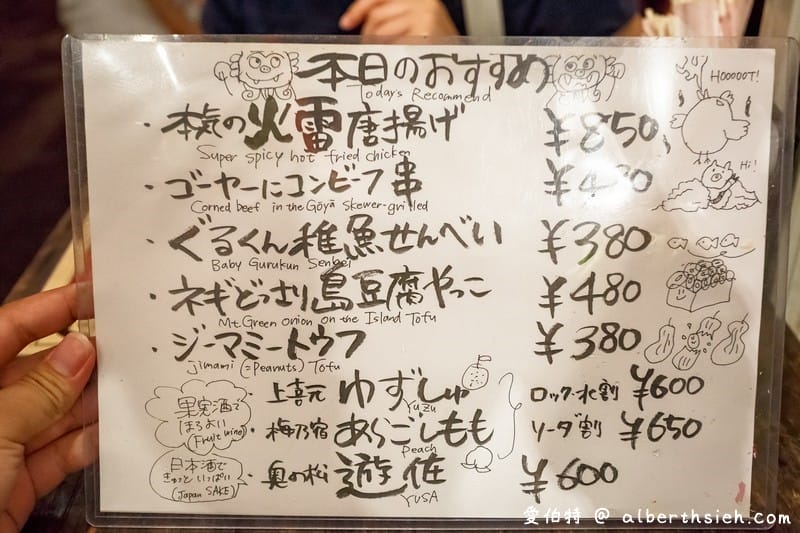 本日のおすすめ
Today's Recommend
・本気の火雷唐揚げ ¥850
Super spicy hot fried chicken
HOOOOOT!
・ゴーヤーにコンビーフ串
Corned beef in the Gōyā skewer-grilled
Hi!
・ぐるくん稚魚せんべい ¥380
Baby Gurukun Senbei
・ネギどっさり島豆腐やっこ ¥480
Mt. Green onion on the Island Tofu
・ジーマミートウフ ¥380
Jimami (=Peanuts) Tofu
果実酒で
ほろよい
(Fruit wine)
・上喜元 ゆずしゅ ロック・水割 ¥600
Yuzu
・梅乃宿 あらごしもも ソーダ割 ¥650
Peach
日本酒で
きゅっといっぱい
(Japan SAKE)
・奥の松 遊佐 ¥600
YUSA
愛伯特 @ alberthsieh.com